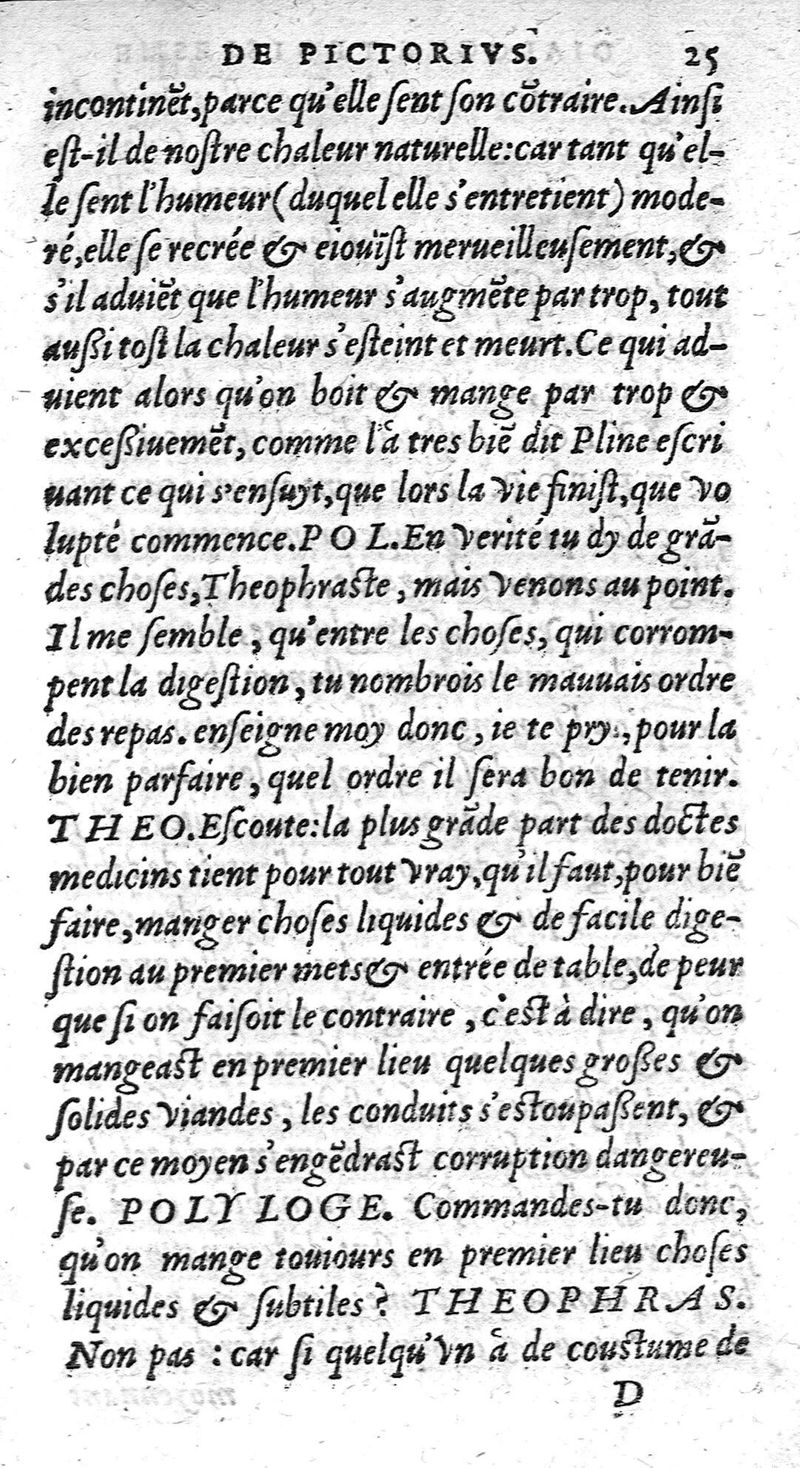 DE PICTORIVS. 25
incontinẽt, parce qu'elle ſent ſon cõtraire. Ainſi
eſt-il de noſtre chaleur naturelle: car tant qu'el-
le ſent l'humeur (duquel elle s'entretient) mode-
ré, elle ſe recrée & eiouïſt merueilleuſement, &
s'il aduiẽt que l'humeur s'augmẽte par trop, tout
außi toſt la chaleur s'eſteint et meurt. Ce qui ad-
uient alors qu'on boit & mange par trop &
exceßiuemẽt, comme l'à tres biẽ dit Pline eſcri
uant ce qui s'enſuyt, que lors la vie finiſt, que vo
lupté commence. POL. En verité tu dy de grã-
des choſes, Theophraſte, mais venons au point.
Il me ſemble, qu'entre les choſes, qui corrom-
pent la digeſtion, tu nombrois le mauuais ordre
des repas. enſeigne moy donc, ie te pry, pour la
bien parfaire, quel ordre il ſera bon de tenir.
THEO. Eſcoute: la plus grãde part des doctes
medicins tient pour tout vray, qu'il faut, pour biẽ
faire, manger choſes liquides & de facile dige-
ſtion au premier mets & entrée de table, de peur
que ſi on faiſoit le contraire, c'eſt à dire, qu'on
mangeaſt en premier lieu quelques großes &
ſolides viandes, les conduits s'eſtoupaßent, &
par ce moyen s'engẽdraſt corruption dangereu-
ſe. POLYLOGE. Commandes-tu donc,
qu'on mange touiours en premier lieu choſes
liquides & ſubtiles? THEOPHRAS.
Non pas: car ſi quelqu'vn à de couſtume de
D